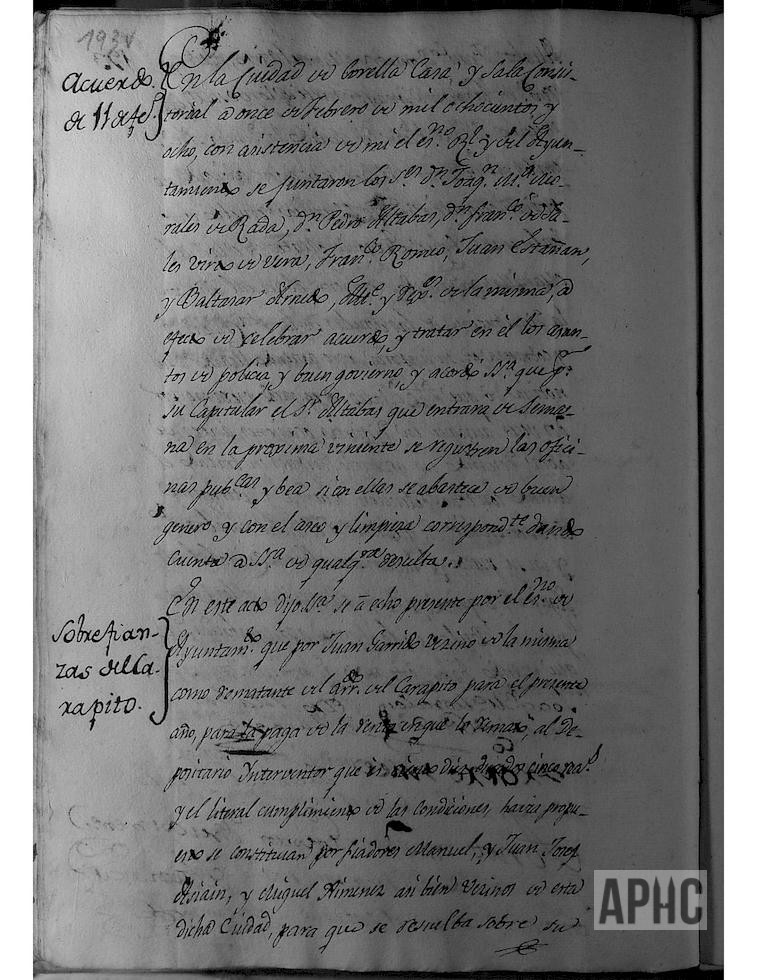 193v
Acuerdo
de 11 de fe.º
En la Ciudad de Corella Casa, y Sala Consis-
torial a once de Febrero de mil ochocientos y
ocho, con asistencia de mi el es.no R.l y del Ayun-
tamiento se juntaron los S.res D.n Joaq.n M.a Mo-
rales de Rada, D.n Pedro Altabas, D.n Fran.co de Sa-
les Virto de Vera, Fran.co Romeo, Juan Estañan,
y Baltasar Arnedo, Alc.e y Rex.s de la misma, a
efecto de celebrar acuerdo, y tratar en el los asun-
tos de policia, y buen govierno, y acordó S.Sª que p.r
su Capitular el S.r Altabas que entrará de Sema-
na en la proxima viniente se registren las ofici-
nas pub.cas y bea si en ellas se abastece de buen
genero y con el aseo y limpieza correspond.te dando
cuenta a S.Sª de qualq.ra resulta.
Sobre fian-
zas del Ca-
rapito.
En este acto dijo S.Sª se a echo presente por el es.no de
Ayuntam.to que por Juan Garrido vecino de la misma
como rematante del arr.do del Carapito para el presente
año, para la paga de la renta en que la remató, al De-
positario Interventor que es ciento diez ducados cinco rea.s
y el literal cumplimiento de las condiciones, havia propu-
esto se constituian por fiadores Manuel, y Juan Josef
Asiain, y Miguel Ximenez asi bien vecinos de esta
dicha Ciudad, para que se resuelba sobre su
APHC